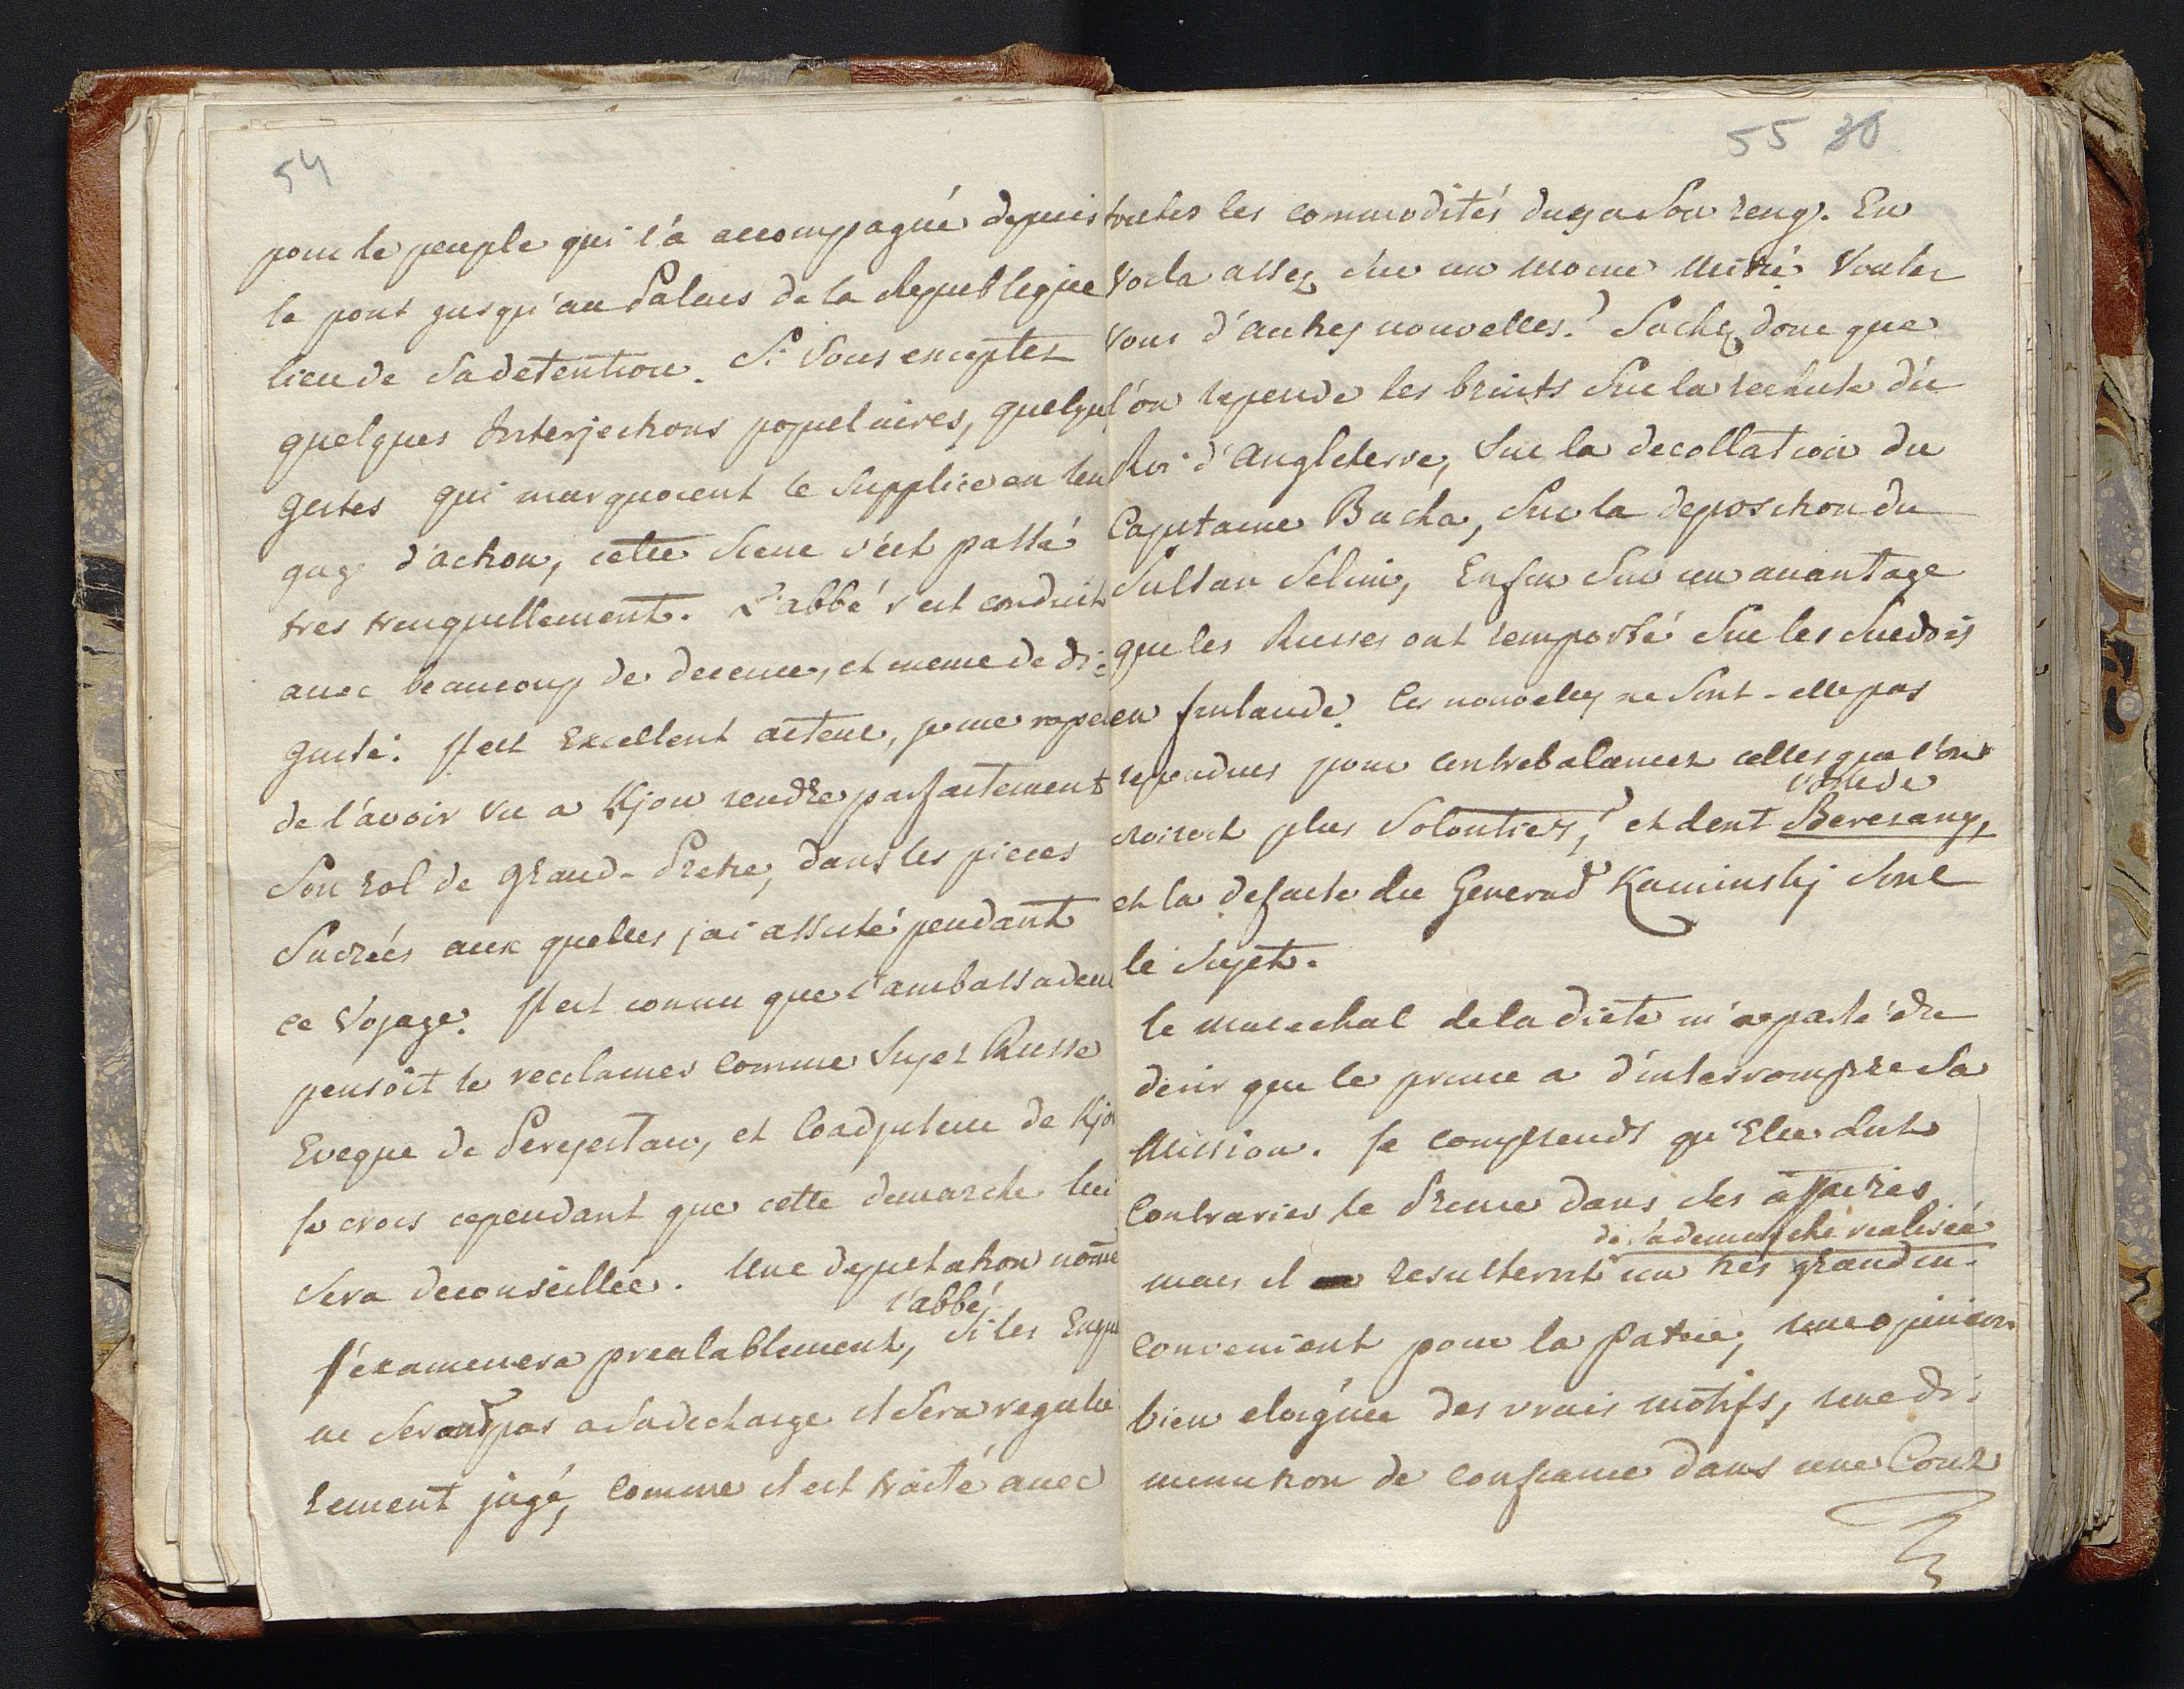 54
pour le peuple qui l'a accompagné depuis
le pont jusqu'au Palais de la Republique
lieu de Sa detention. Si Vous exceptez
quelques Interjections populaires, quelques
gestes qui marquoient le Supplice en len
gage d'action, cette Scene s'est passé
tres trenquellement. L'abbé s'est conduit
avec beaucoup de decence, et meme de di=
gnité. Il est Excellent acteur, je me rapel
de l'avoir vu a Kjow rendre parfaitement
Son rol de Grand-Pretre, dans les pieces
Sacrées aux quelles j'ai assisté pendant
ce Voyage. Il est connu que l'ambassadeur
pensoit le reclamer comme Sujet Russe
Eveque de Perejeslaw, et Coadjuteur de Kjow
Je crois cependant que cette demarche lui
Sera deconseillée. Une deputation nommé
l'abbé
l'examinera prealablement, Si les Enqu
ne Seront pas a Sa decharge il Sera regulie
rement jugé, comme il est traité avec
55 30
toutes les commodités dues a Son reng. En
Voila assez sur un moine Mitré. Voulez
Vous d'autres nouvelles? Sachez donc que
l'on repende les bruits Sur la rechute du
Roi d'Angleterre, Sur la decollation du
Capitaine Bacha, Sur la deposition du
Sultan Selim, Enfin Sur un avantage
que les Russes ont remporté Sur les Suedois
en finlande. Ces nouvelles ne Sont-elle pas
rependues pour contrebalancer celles que l'on
croiroit plus Volontiers, et dont Beresany,
et la defaite du General Kaminskj Sont
le Sujet.
le marechal de la diete m'a parlé du
desir que le prince a d'interrompre Sa
Mission. Je comprends qu'Elle dut
Contrarier le Prince dans Ses affaires
de Sa demarche realisée
mais il resulteroit un tres grand in=
convenient pour la Patrie, une opinion
bien eloignée des vrais motifs, une di=
minution de confiance dans une Cour